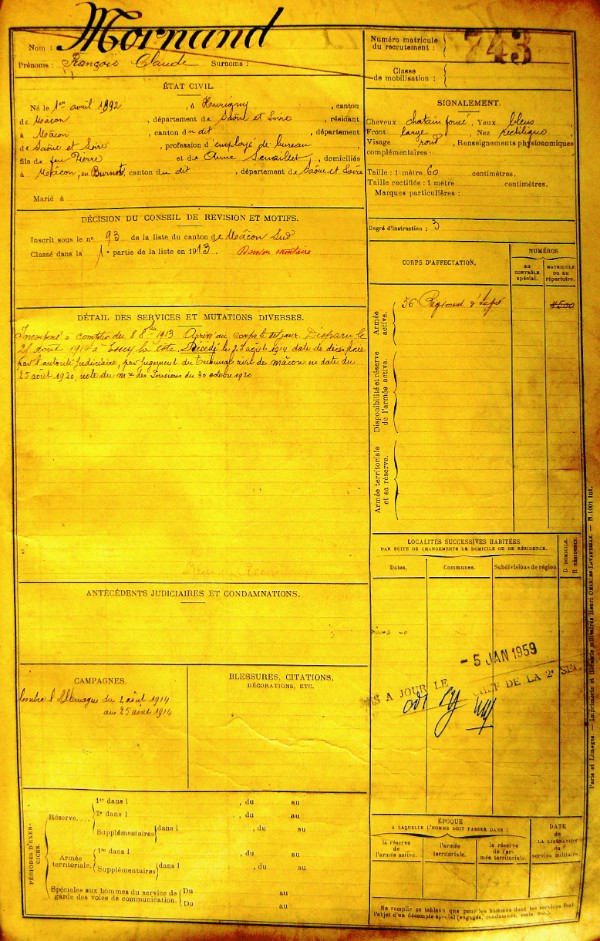 Nom : Mornand
Prénoms : François Claude Surnoms :
Numéro matricule
du recrutement : 743
Classe
de mobilisation :
ÉTAT CIVIL
Né le 1er avril 1892, à Hurigny, canton
de Mâcon, département de Saône et Loire, résidant
à Mâcon, canton du dit, département
de Saône et Loire, profession d'employé de bureau
fils de feu Pierre et de Anne, domiciliés
à Mâcon, canton du dit, département de Saône et Loire
Marié à
SIGNALEMENT.
Cheveux chatain foncé, Yeux bleus
Front large, Nez Rectiligne
Visage rond, Renseignements physionomiques
complémentaires :
Taille : 1 mètre 60 centimètres.
Taille rectifiée : 1 mètre centimètres.
Marques particulières :
Degré d'instruction : 3
DÉCISION DU CONSEIL DE REVISION ET MOTIFS.
Inscrit sous le n° 93 de la liste du canton de Mâcon Sud
Classé dans la 1e partie de la liste en 1913
CORPS D'AFFECTATION.
NUMÉROS
AU CONTRÔLE spécial.
MATRICULE OU AU répertoire.
Armée active.
56 Régiment d'Inf
Disponibilité et réserve de l'armée active.
Armée territoriale et sa réserve.
DÉTAIL DES SERVICES ET MUTATIONS DIVERSES.
Incorporé à compter du 8 8bre 1913 Arrivé au corps le dit jour. Disparu le
25 août 1914 à Essey la Côte. Décédé le 25 août 1914 date déclarée
par l'autorité judiciaire, par jugement du tribunal civil de Mâcon en date du
25 août 1920, note du Mre des Pensions du 30 octobre 1920
ANTÉCÉDENTS JUDICIAIRES ET CONDAMNATIONS.
LOCALITÉS SUCCESSIVES HABITÉES
PAR SUITE DE CHANGEMENTS DE DOMICILE OU DE RÉSIDENCE.
Dates. Communes. Subdivisions de région. D. DOMICILE. R. RÉSIDENCE.
- 5 JAN 1959
A JOUR LE
CHEF DE LA 2e SEC.
CAMPAGNES.
Contre l'Allemagne du 2 août 1914
au 25 août 1914
BLESSURES, CITATIONS,
DÉCORATIONS, ETC.
PÉRIODES D'EXERCICES.
Réserve.....
1re dans l , du au
2e dans l , du au
Supplémentaires dans l , du au
Armée territoriale.
1re dans l , du au
Supplémentaires dans l , du au
Spéciales aux hommes du service de
garde des voies de communication.
Du au
Du au
ÉPOQUE
A LAQUELLE L'HOMME DOIT PASSER DANS :
la réserve de l'armée active.
l'armée territoriale.
la réserve de l'armée territoriale.
DATE
DE LA LIBÉRATION
du
service militaire.
Ne remplir ce tableau que pour les hommes dont les services font
l'objet d'un décompte spécial (engagés, condamnés, omis etc.).
Paris et Limoges. — Imprimerie et librairie militaires Henri CHARLES-LAVAUZELLE.